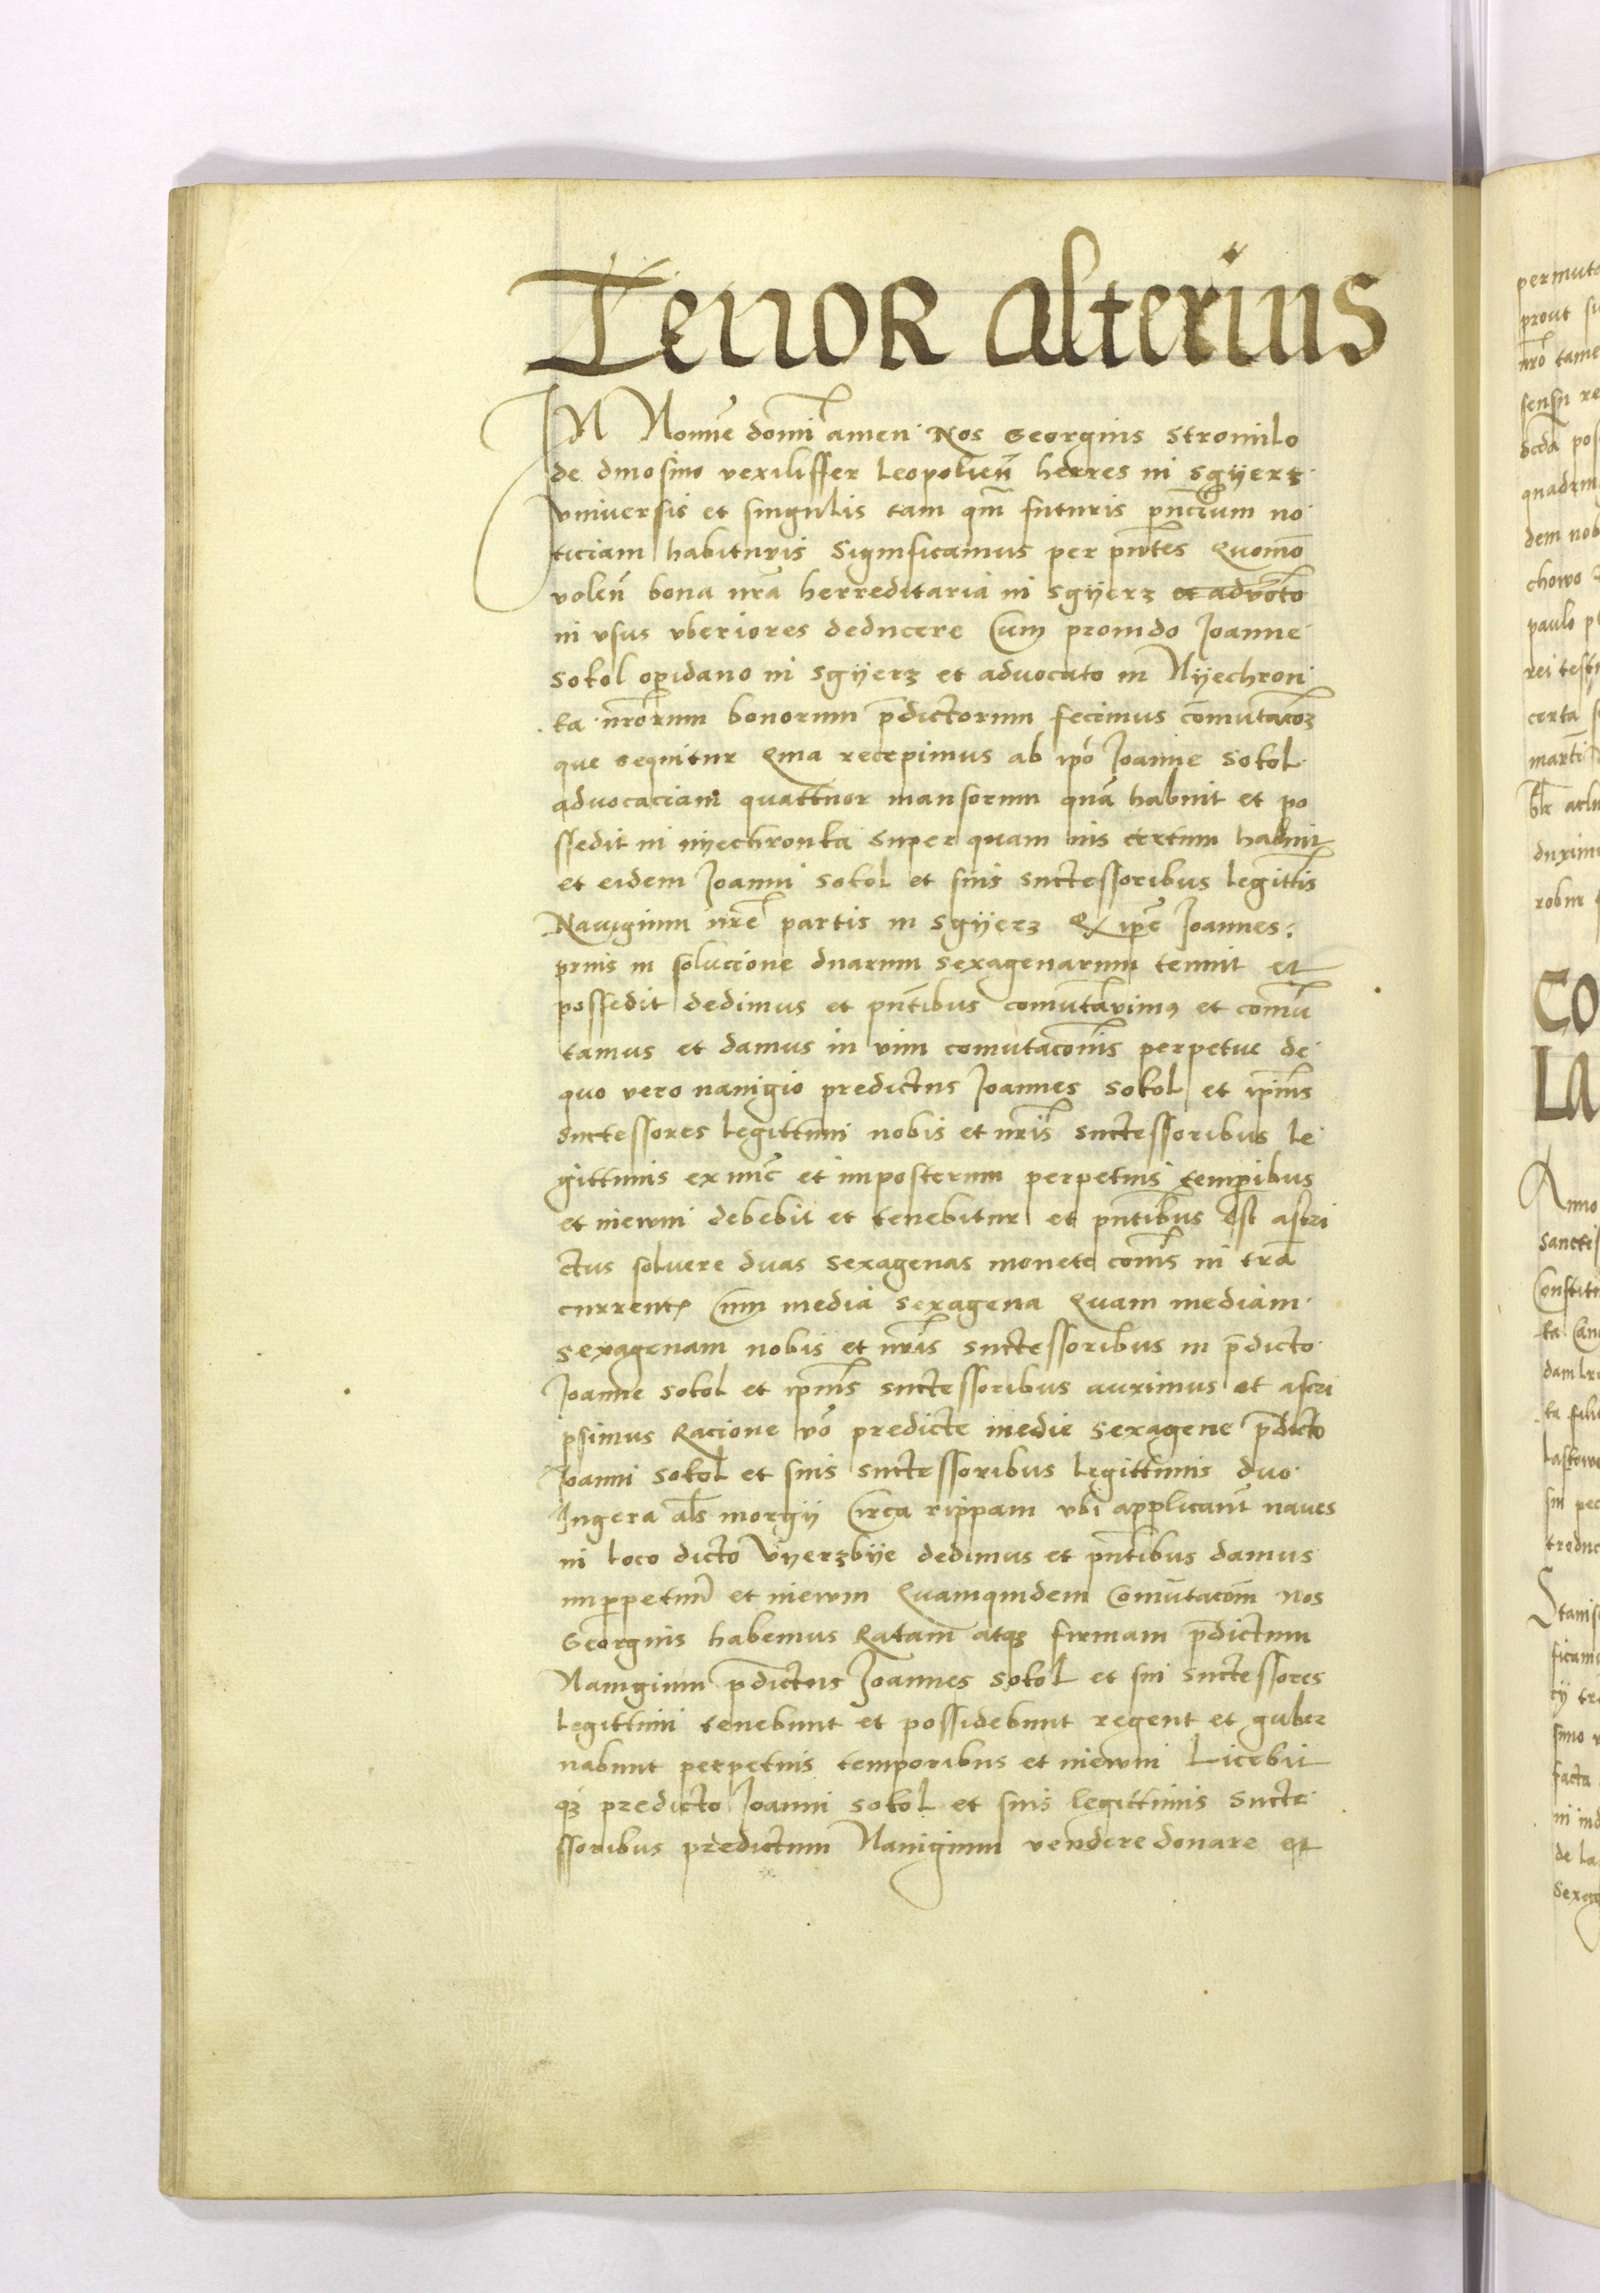 Tenor alterius
IN Nomie domi amen Nos Georgius Stromilo
de dmosino vexiliffer Leopolien herres in Sgyerz
vniversis et singulis tam qm futuris pncium no
ticiam habituris Significamus per pntes Quomo
volen bona nra herreditaria in Sgyerz et advocto
in vsus vberiores deducere Cum provido Joanne
Sokol opidano in Sgyerz et advocato in Nyechron
ka nrorum bonorum pdictorum fecimus comutacoz
que sequitur Qma recepimus ab ipo Joanne Sokol
advocaciam quattuor mansorum qua habuit et po
ssedit in nyechronka super quam ius certum habuit
et eidem Joanni Sokol et suis successoribus legittis
Navigium nre partis in Sgyerz Q ipe Joannes
prius in solucione duarum sexagenarum tenuit et
possedit dedimus et pntibus comutavimus et comu
tamus et damus in vim comutaconis perpetue de
quo vero navigio predictus Joannes Sokol et ipius
successores legittimi nobis et nris successoribus le
gittimis ex nuc et imposterum perpetuis tempibus
et niewni debebit et tenebitur et pntibus est astri
ctus solvere duas sexagenas monete cois in tra
current Cum media sexagena Quam mediam
sexagenam nobis et nris successoribus in pdicto
Joanne Sokol et ipius successoribus auximus et ascri
psimus Racione vo predicte medie sexagene pdicto
Joanni Sokol et suis successoribus legittimis duo
Jugera als morgy Circa rippam vbi applicant naves
in loco dicto Vyerzbye dedimus et pntibus damus
imppetuu et niewm Quamquidem Comutacom Nos
Georgius habemus Ratam atqz firmam pdictum
Navigium pdictus Joannes Sokol et sui successores
legittimi tenebunt et possidebunt regent et guber
nabunt perpetuis temporibus et niewni Licebit
qz predicto Joanni Sokol et suis legittimis succe
ssoribus predictum Navigium vendere donare et